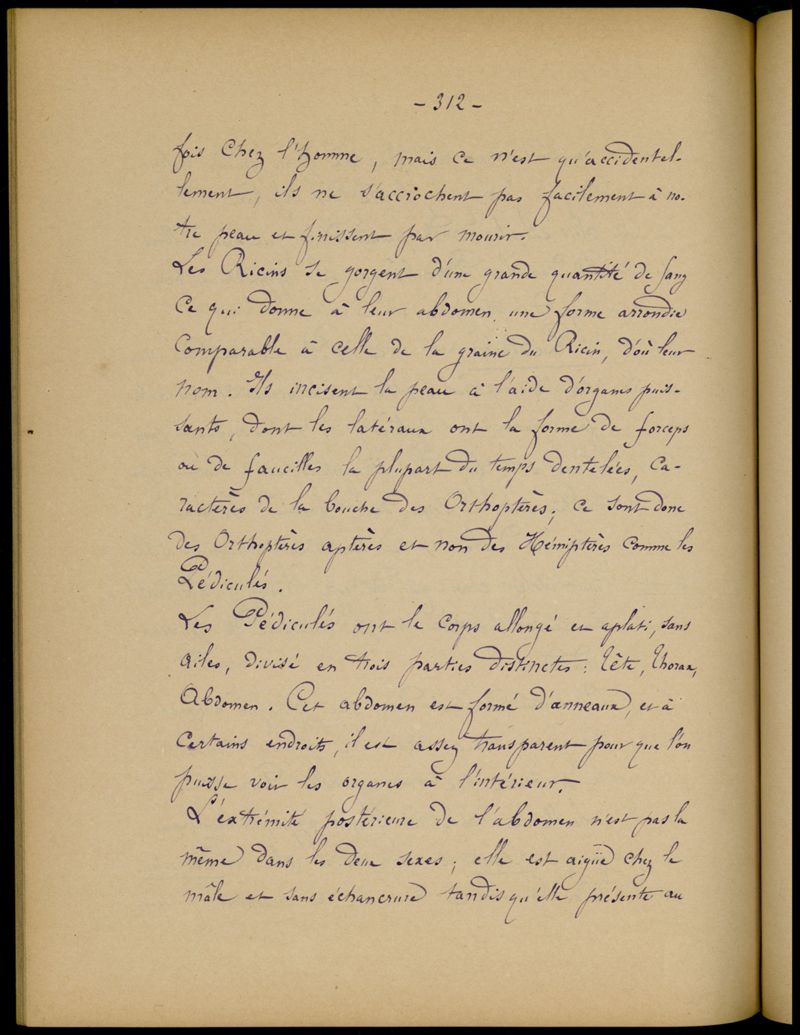 - 312 -
fois chez l'homme, mais ce n'est qu'accidentel-
lement, ils ne s'accrochent pas facilement à no-
tre peau et finissent par mourir.
Les Ricins se gorgent d'une grande quantité de sang
ce qui donne à leur abdomen une forme arrondie
comparable à celle de la graine du Ricin, d'où leur
nom. Ils incisent la peau à l'aide d'organes puis-
sants, dont les latéraux ont la forme de forceps
ou de faucilles la plupart du temps dentelées, ca-
ractères de la bouche des Orthoptères; ce sont donc
des Orthoptères aptères et non des Hémiptères comme les
Pédiculés.
Les Pédiculés ont le corps allongé et aplati, sans
ailes, divisé en trois parties distinctes: Tête, Thorax,
Abdomen. Cet abdomen est formé d'anneaux, et à
certains endroits, il est assez transparent pour que l'on
puisse voir les organes à l'intérieur.
L'extrémité postérieure de l'abdomen n'est pas la
même dans les deux sexes; elle est aigüe chez le
mâle et sans échancrure tandis qu'elle présente au